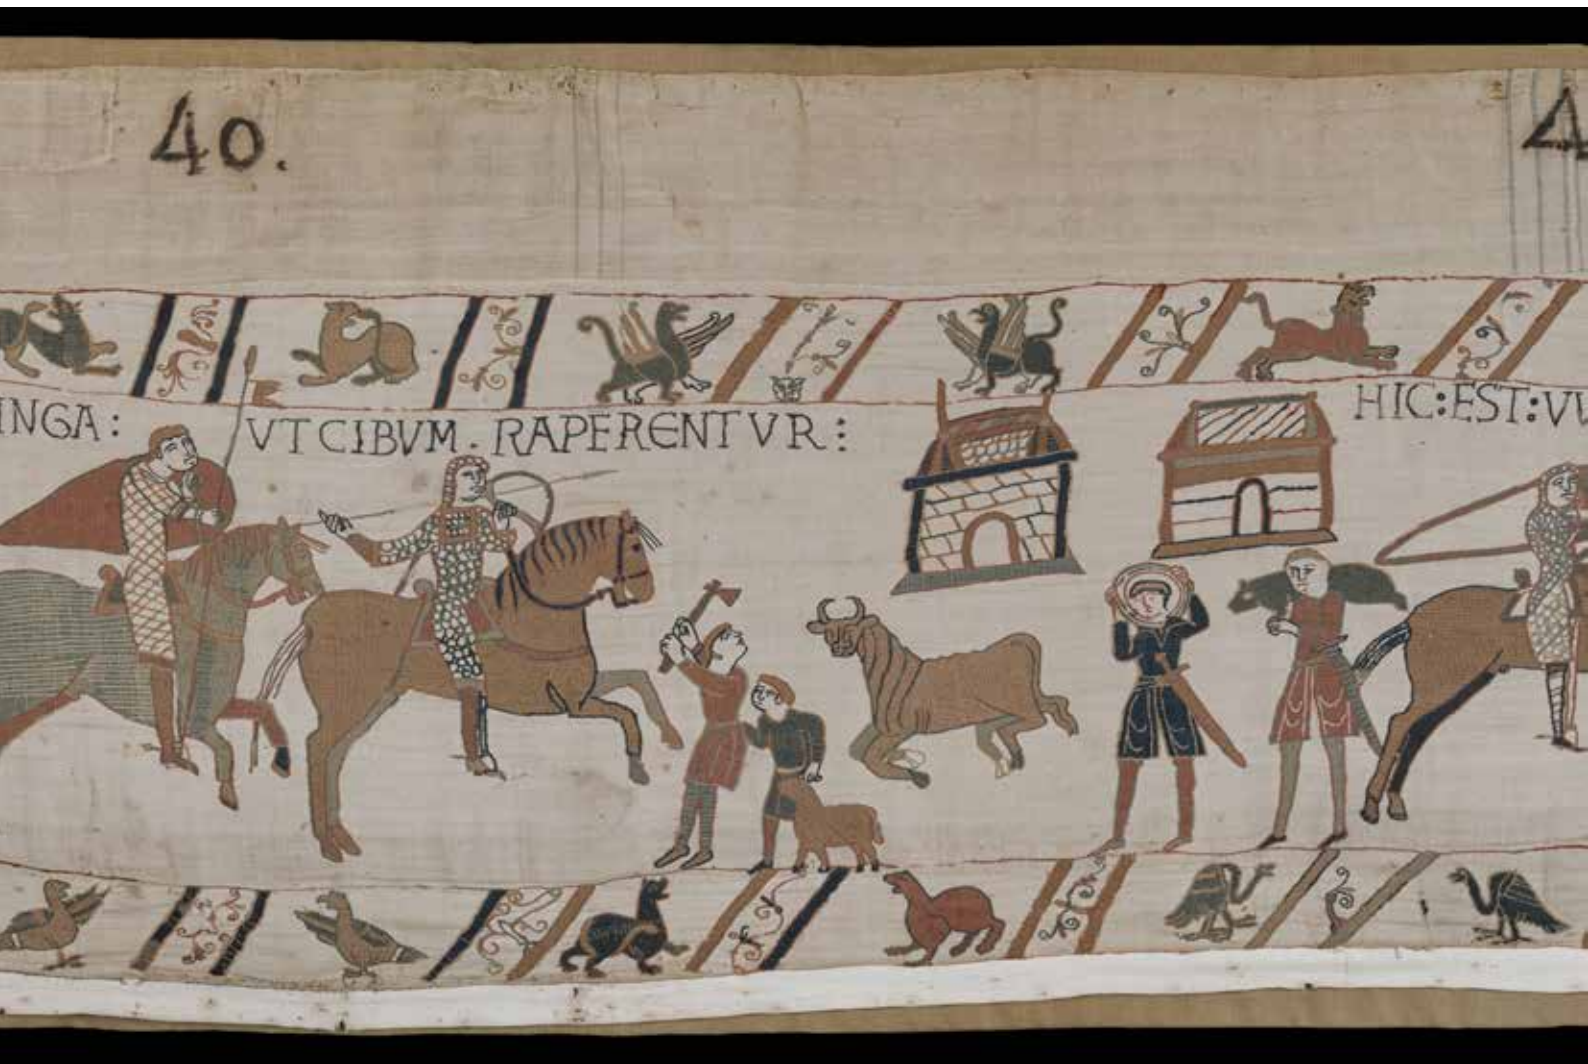 40.
4
INGA: VT CIBVM . RAPERENTVR: HIC:EST:VV